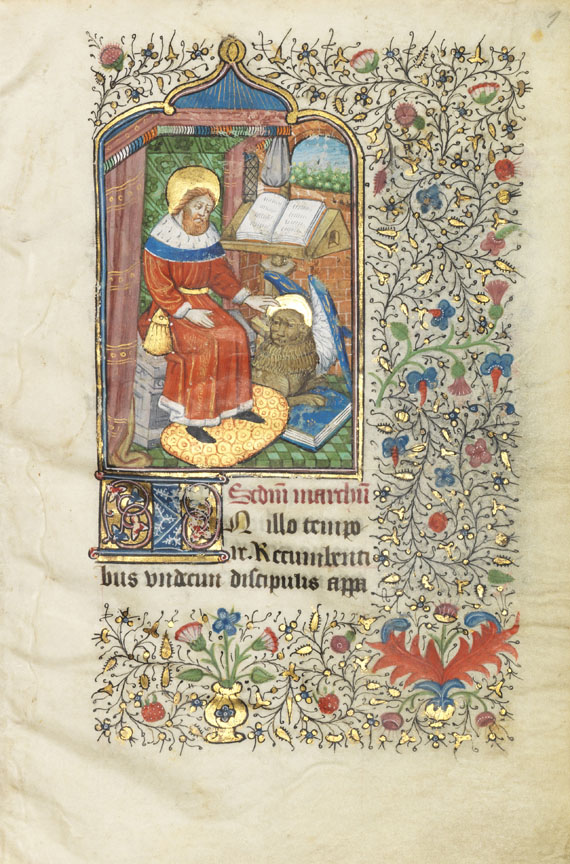 Scd̄m marcum
IN illo tempo
re. Recumbenti
bus vndecim discipulis appa